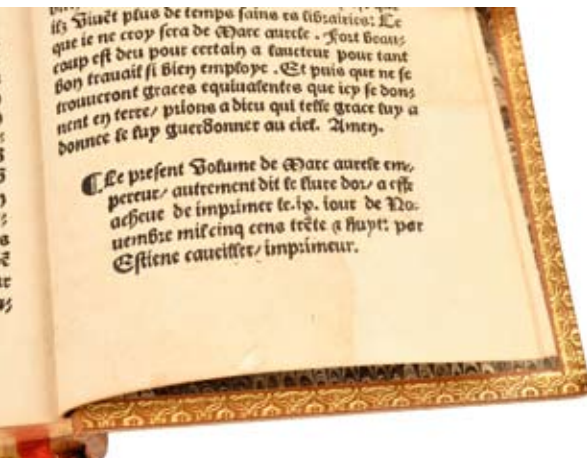 ilz Viuēt plus de temps sains es librairies: Ce
que ie ne croy sera de Marc aurele . Fort beau⸗
coup est deu pour certain a laucteur pour tant
bon trauail si bien employe . Et puis que ne se
trouueront graces equiualentes que icy se don⸗
nent en terre/ prions a dieu qui telle grace luy a
donnee le luy guerdonner au ciel. Amen.
¶ Le present Volume de Marc aurele em⸗
pereur/ autrement dit le liure dor/ a este
acheue de imprimer le .ix. iour de No⸗
uembre mil cinq cens trēte & huyt: par
Estiene caueiller/ imprimeur.